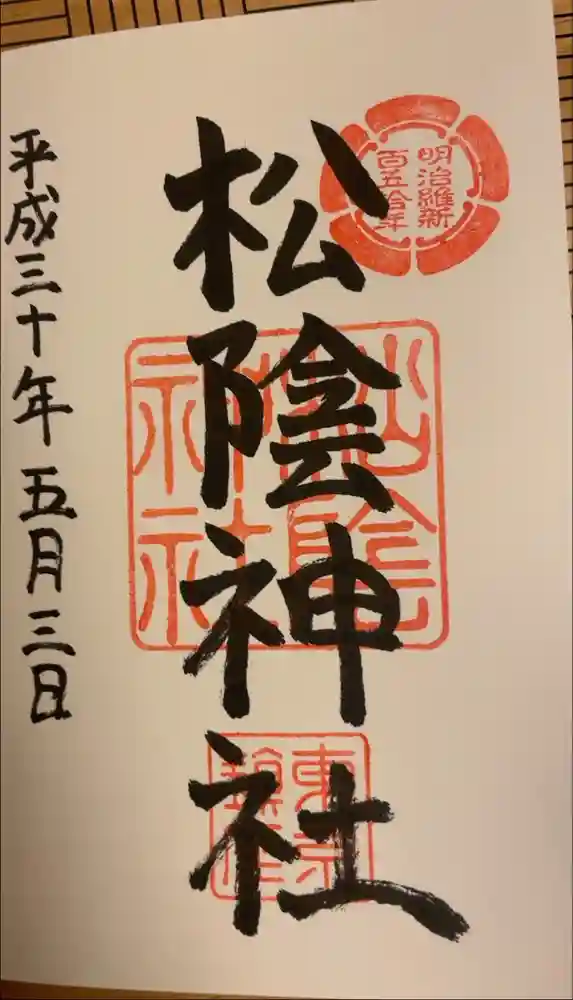 明治維新
百五拾年
松陰神社
松陰
神社
平成三十年五月三日